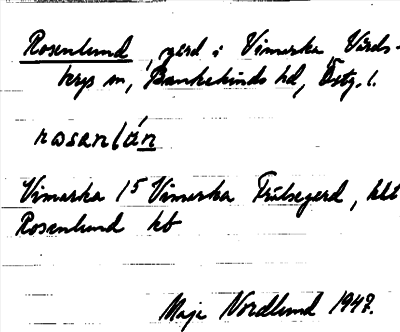 Rosenlund, gård i Vimarka, Vårds-
bergs sn, Bankekinds hd, Östg. l.
rosanlán
Vimarka 15 Vimarka Frälsegård, kbt
Rosenlund kb
Maja Nordlund 1947.